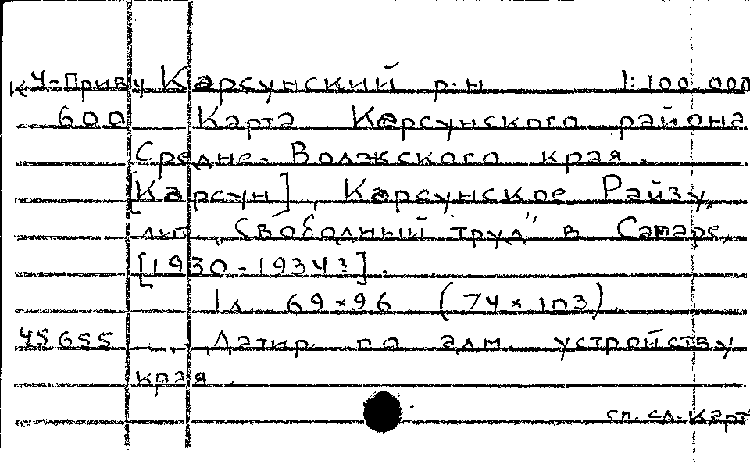 К 4-Приву Карсунский р-н 1:100.000
600 Карта Карсунского района
Средне-Волжского края.
[Карсун], Карсунское Райзу,
лит. "Свободный труд" в Самаре,
[1930-1934?].
1 л. 69×96 (74×103)
45655 Датир. по адм. устройству
края.
сп. сл. карт